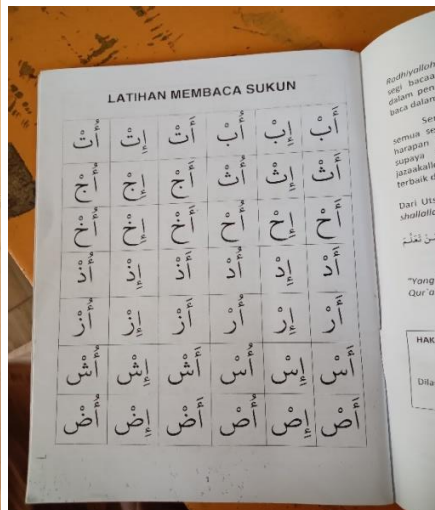 LATIHAN MEMBACA SUKUN
أَبْ إِبْ أُبْ أَتْ إِتْ أُتْ
أَثْ إِثْ أُثْ أَجْ إِجْ أُجْ
أَحْ إِحْ أُحْ أَخْ إِخْ أُخْ
أَدْ إِدْ أُدْ أَذْ إِذْ أُذْ
أَرْ إِرْ أُرْ أَزْ إِزْ أُزْ
أَسْ إِسْ أُسْ أَشْ إِشْ أُشْ
أَصْ إِصْ أُصْ أَضْ إِضْ أُضْ
Radhiyalloh
segi bacaa
dalam pen
baca dalan
semua se
harapan
supaya
jazaakall
terbaik d
Dari Uts
shallall
"Yang
Qur`a
HAK
Dila